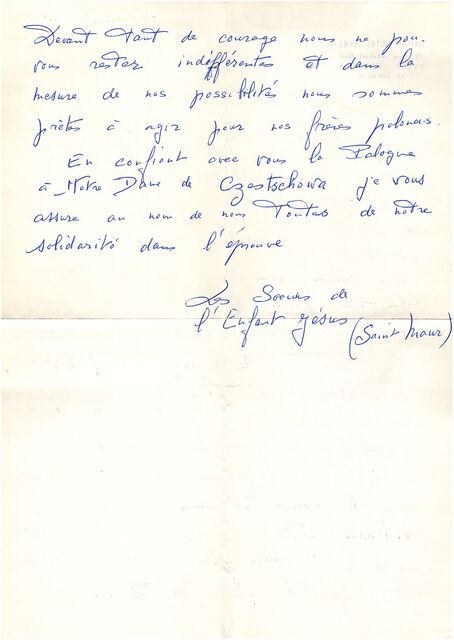 Devant tant de courage nous ne pou-
vons rester indifférentes et dans la
mesure de nos possibilités nous sommes
prêtes à agir pour nos frères polonais.
En confiant avec vous la Pologne
à Notre Dame de Czestschowa je vous
assure au nom de nous toutes de notre
solidarité dans l'épreuve
Les Soeurs de
l'Enfant Jésus
(Saint Maur)